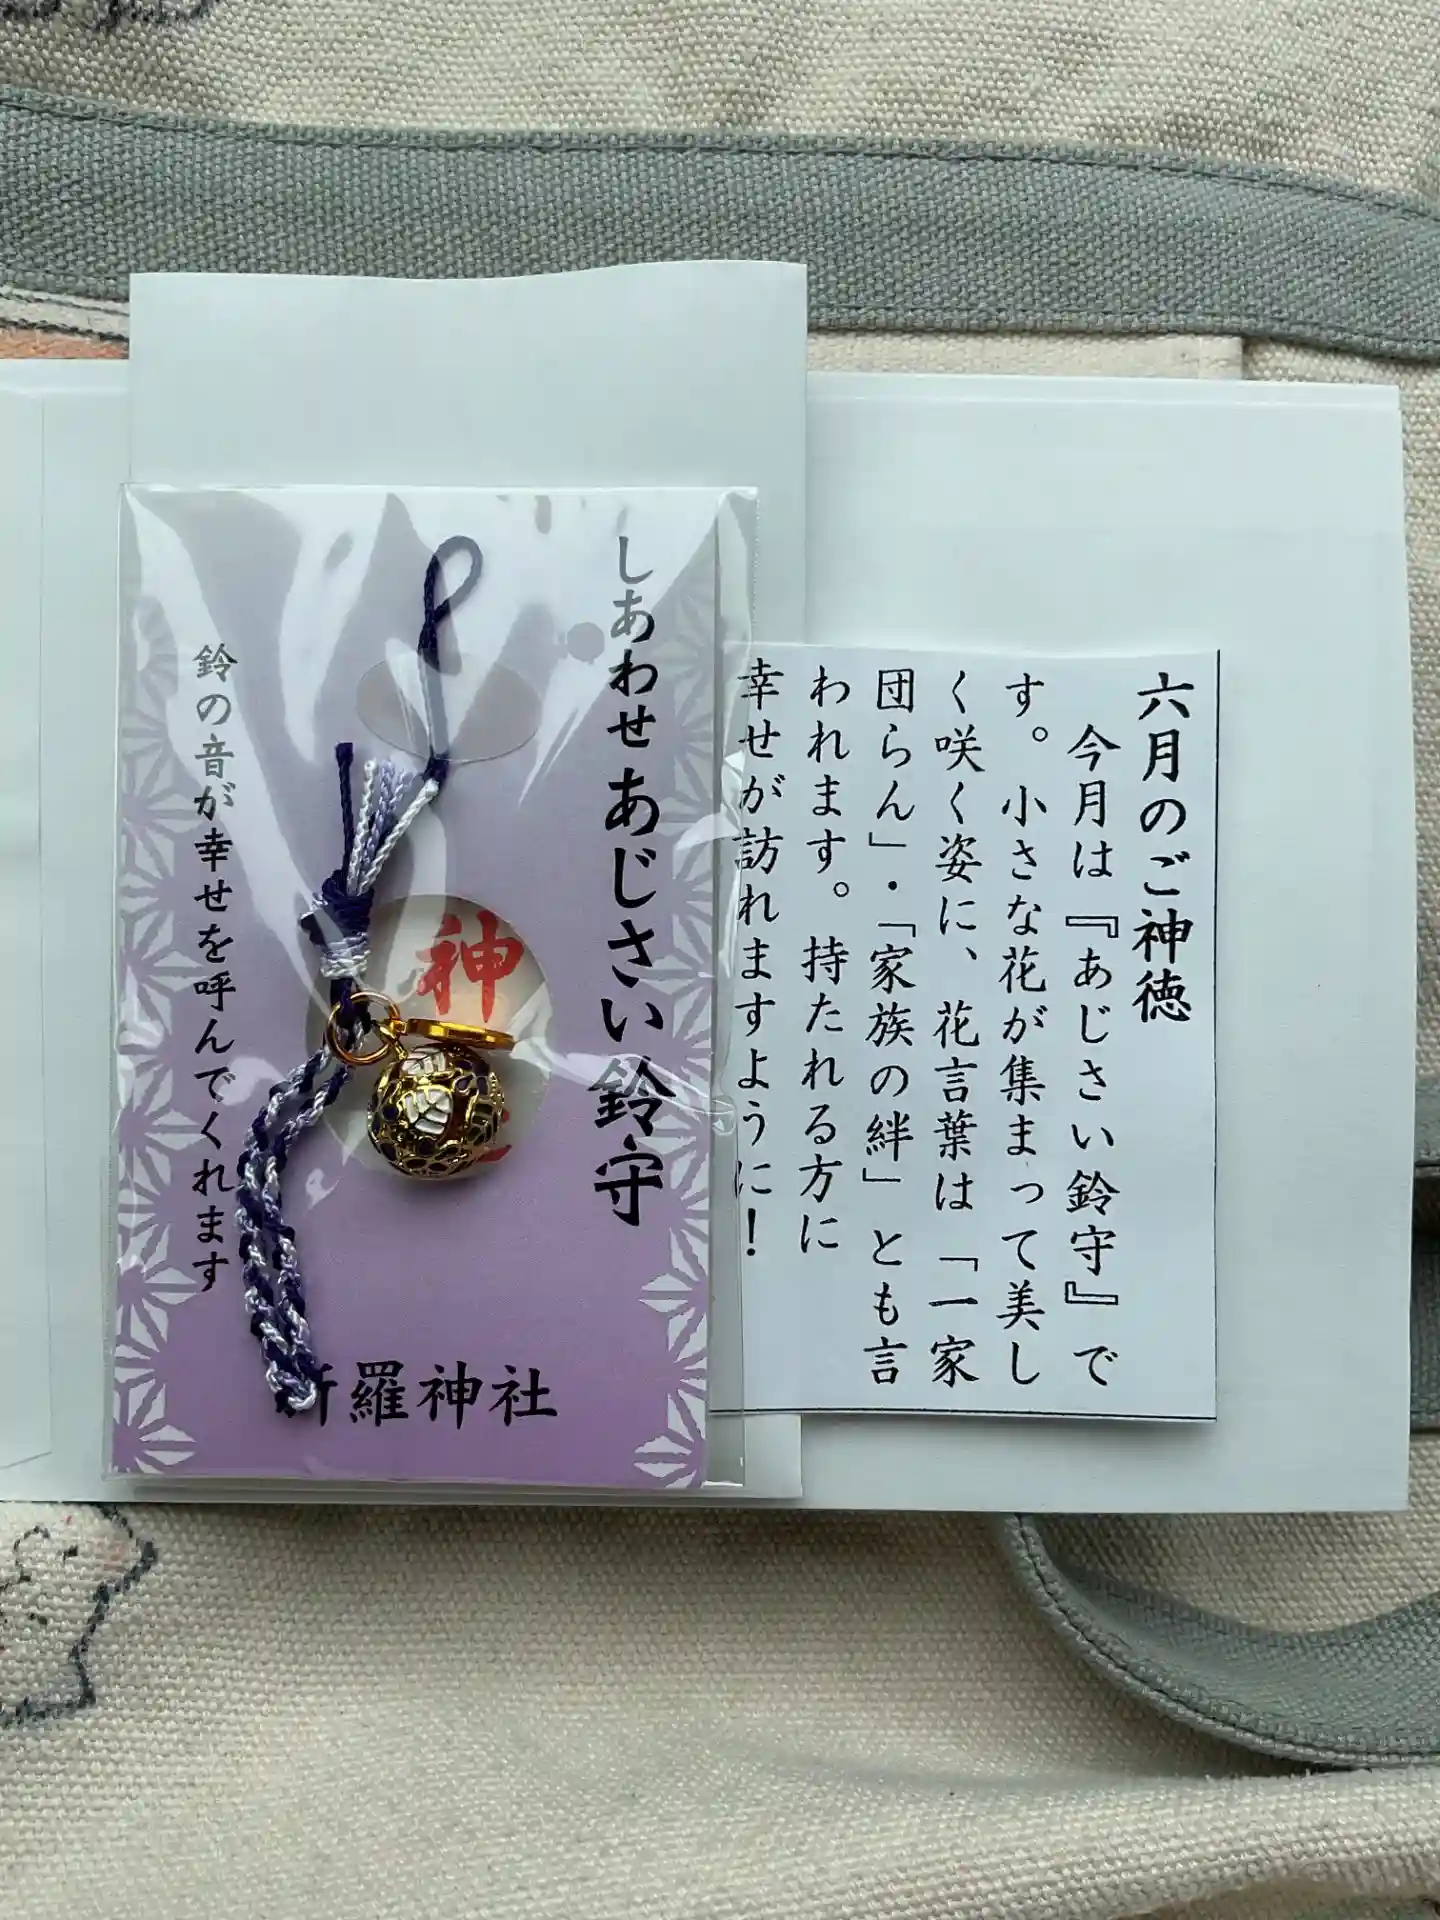 六月のご神徳
今月は『あじさい鈴守』で
す。小さな花が集まって美し
く咲く姿に、花言葉は「一家
団らん」・「家族の絆」とも言
われます。持たれる方に
幸せが訪れますように!
しあわせ あじさい鈴守
神
鈴の音が幸せを呼んでくれます
新羅神社